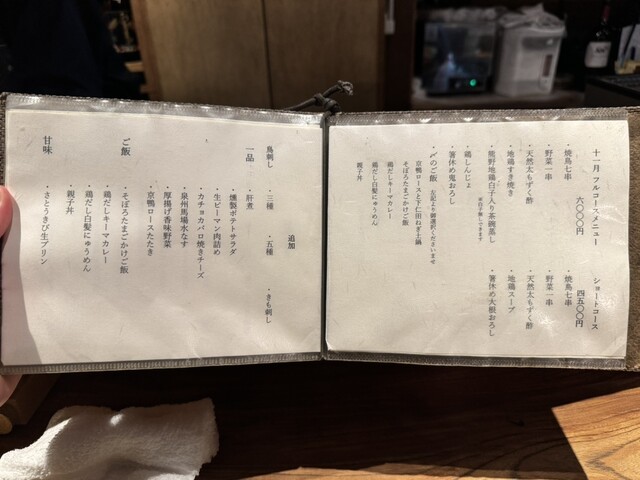 十一月 フルコースメニュー
六〇〇〇円
・焼鳥七串
・野菜一串
・天然太もずく酢
・地鶏すき焼き
・熊野地鶏白子入り茶碗蒸し
※白子無しできます
・鶏しんじょ
・箸休め鬼おろし
・〆のご飯 左記より御選択くださいませ
京鴨ロースと下仁田ねぎ土鍋
そぼろたまごかけご飯
鶏だしキーマカレー
鶏だし白髪にゅうめん
親子丼
ショートコース
四五〇〇円
・焼鳥七串
・野菜一串
・天然太もずく酢
・地鶏スープ
・箸休め大根おろし
追加
鳥刺し
・三種
・五種
・きも刺し
一品
・肝煮
・燻製ポテトサラダ
・生ピーマン肉詰め
・カチョカバロ焼きチーズ
・泉州馬場水なす
・厚揚げ香味野菜
・京鴨ロースたたき
ご飯
・そぼろたまごかけご飯
・鶏だしキーマカレー
・鶏だし白髪にゅうめん
・親子丼
甘味
・きとうきび生プリン